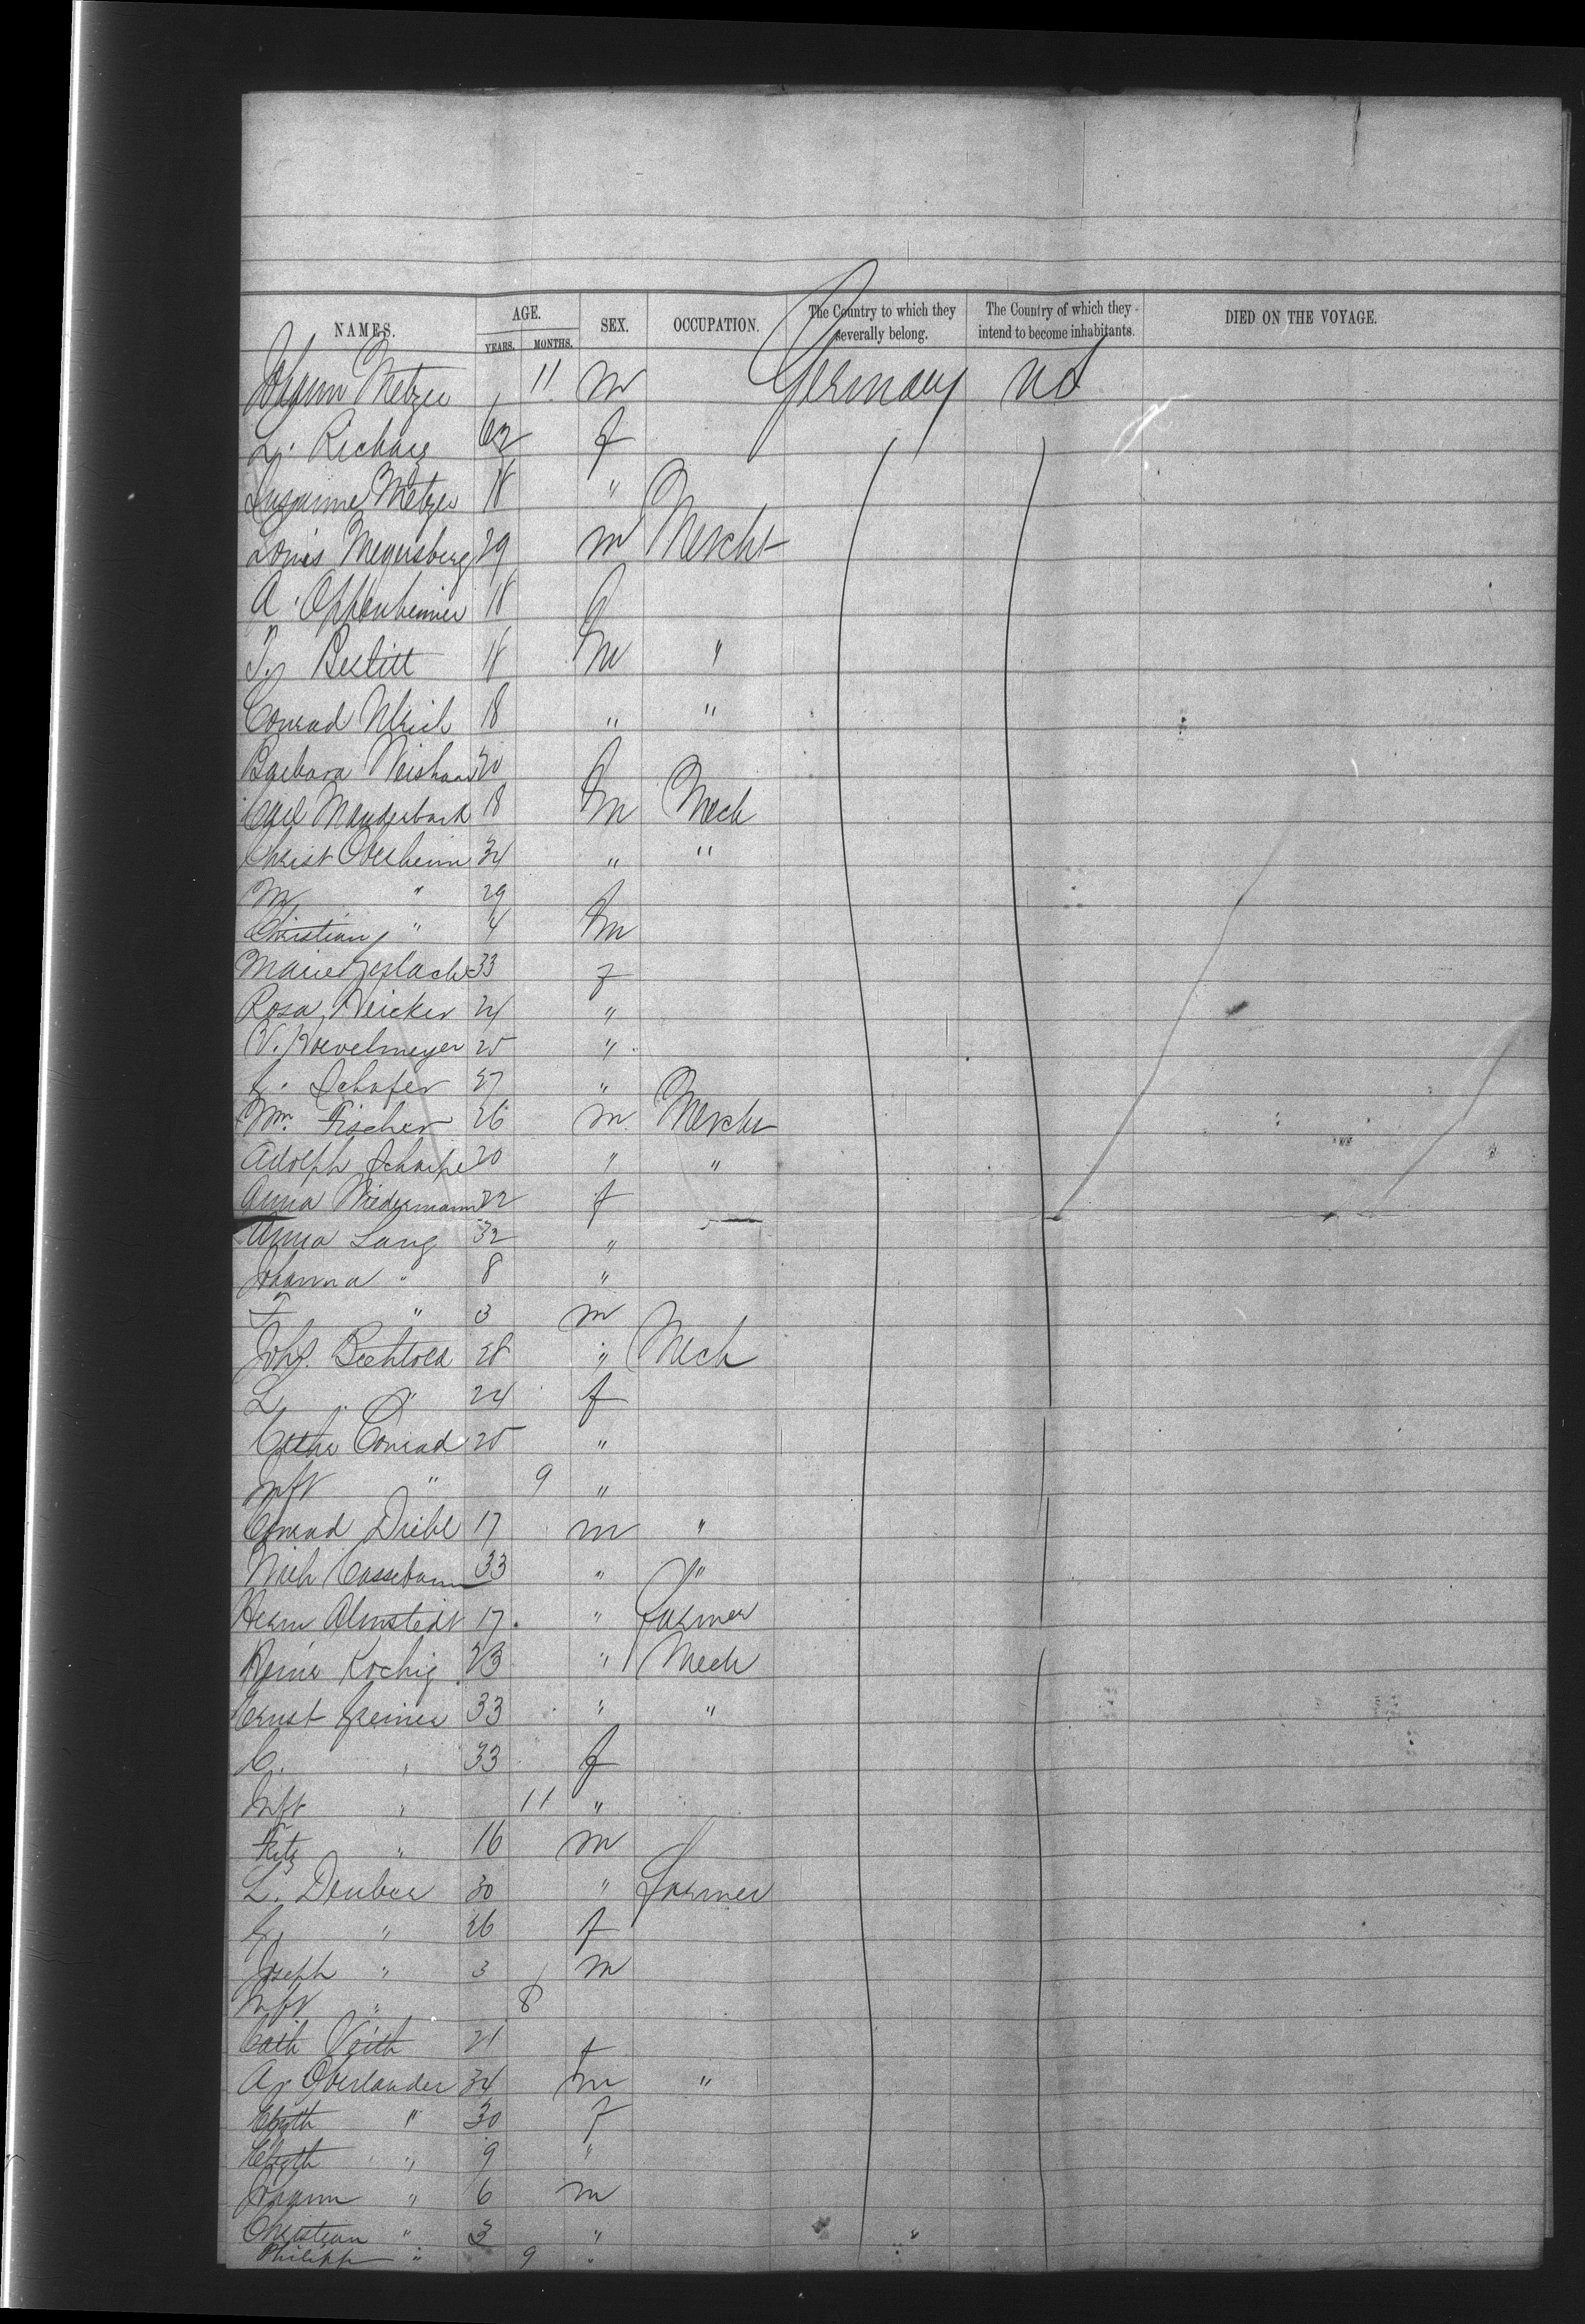 NAMES. AGE. SEX. OCCUPATION. The Country to which they severally belong. The Country of which they intend to become inhabitants. DIED ON THE VOYAGE.
YEARS. MONTHS.
Johann Metzer 11 m Germany US
L. Richarz 62 f
Susanne Metzer 18 "
Louis Meyersberg 29 m Mercht
A. Oppenheimer 18 f
18 m "
Conrad Ulrich 18 " "
Barbara 20 f
Carl Manderbach 18 m Mech
Christ Oberheim 34 " "
M. " 29 f
Christian " 4 m
Marie Gerlach 33 f
Rosa Neicker 24 "
V. Hoevelmeyer 25 "
Schafer 27 "
Wm. Fischer 26 m Mercht
Adolph Scharpe 20 " "
Anna Wiedermann 22 f
Anna Lang 32 "
Johanna " 8 "
F. " 3 m
Joh. Bechtold 28 " Mech
L. " 24 f
Cathe Conrad 25 "
Inft " 9 "
Conrad Diehl 17 m "
Mich Cassebaum 33 " "
Herm Almstedt 17 " Farmer
Heinr Kochig 23 " Mech
Ernst Greiner 33 " "
C. " 33 f
Inft " 11 "
Fritz " 16 m
L. Deuber 30 " Farmer
" 26 f
Joseph " 3 m
Inft " 8
Cath Veith 21 f
A. Oberlander 34 m "
Elizth " 30 f
Elizth " 9 "
Johann " 6 m
Christian " 3 " "
Philipp " 9 "